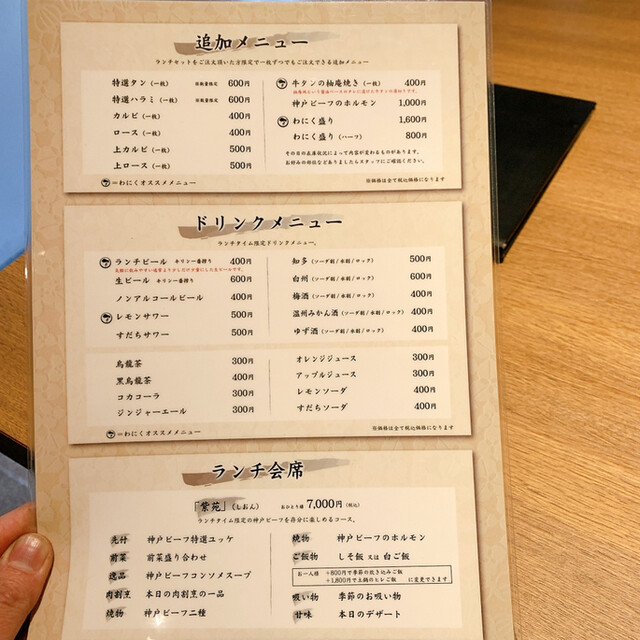 追加メニュー
ランチセットをご注文頂いた方限定で一枚ずつでもご注文できる追加メニュー
特選タン(一枚) ※数量限定 600円
特選ハラミ(一枚) ※数量限定 600円
カルビ(一枚) 400円
ロース(一枚) 400円
上カルビ(一枚) 500円
上ロース(一枚) 500円
牛タンの柚庵焼き(一枚) 400円
神戸ビーフのホルモン 1,000円
わにく盛り 1,600円
わにく盛り(ハーフ) 800円
その日の在庫状況によって内容が変わるものがあります。
お好みの部位などありましたらスタッフにご確認ください。
=わにくオススメメニュー
※価格は全て税込価格になります
ドリンクメニュー
ランチタイム限定ドリンクメニュー。
ランチビール キリン一番搾り 400円
気軽に飲みやすい通常より少しだけ少量にした生ビールです。
生ビール キリン一番搾り 600円
ノンアルコールビール 400円
レモンサワー 500円
すだちサワー 500円
知多(ソーダ割/水割/ロック) 500円
白州(ソーダ割/水割/ロック) 600円
梅酒(ソーダ割/水割/ロック) 400円
温州みかん酒(ソーダ割/水割/ロック) 400円
ゆず酒(ソーダ割/水割/ロック) 400円
烏龍茶 300円
黒烏龍茶 400円
コカコーラ 300円
ジンジャーエール 300円
オレンジジュース 300円
アップルジュース 300円
レモンソーダ 400円
すだちソーダ 400円
=わにくオススメメニュー
※価格は全て税込価格になります
ランチ会席
「紫苑」(しおん) おひとり様 7,000円(税込)
ランチタイム限定の神戸ビーフを存分に楽しめるコース。
先付 神戸ビーフ特選ユッケ
前菜 前菜盛り合わせ
逸品 神戸ビーフコンソメスープ
肉割烹 本日の肉割烹の一品
焼物 神戸ビーフ二種
焼物 神戸ビーフのホルモン
ご飯物 しそ飯 又は 白ご飯
お一人様 +800円で季節の炊き込みご飯
+1,800円で土鍋のヒレご飯 に変更できます
吸い物 季節のお吸い物
甘味 本日のデザート